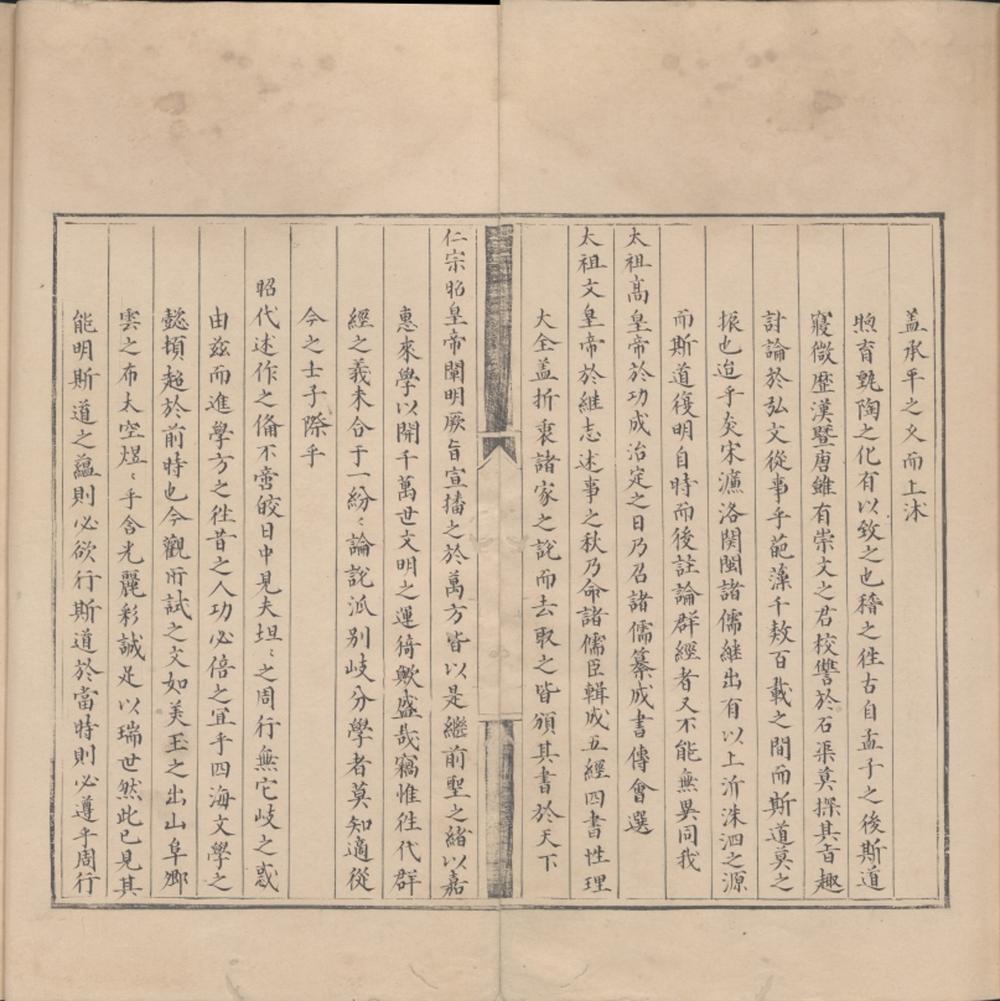 盖承平之久而上沭
煦育甄陶之化有以致之也稽之徃古自孟子之後斯道
寖微歷漢暨唐雖有崇文之君校讐於石渠莫探其㫖趣
討論於弘文從事乎葩藻千数百載之間而斯道莫之
振也迨乎炎宋濂洛関閩諸儒継出有以上泝洙泗之源
而斯道復明自時而後註論群經者又不能無異同我
太祖髙皇帝於功成治定之日乃召諸儒纂成書傳會選
太祖文皇帝於継志述事之秋乃命諸儒臣輯成五經四書性理
大全盖折衷諸家之説而去取之皆頒其書於天下
仁宗昭皇帝闡明厥旨宣播之於萬方皆以是繼前聖之緒以嘉
惠來學以開千萬世文明之運猗歟盛哉竊惟徃代群
經之義未合于一紛〻論説派别岐分學者莫知適從
今之士子際乎
昭代述作之備不啻皎日中見夫坦〻之周行無它岐之惑
由兹而進學方之徃昔之人功必倍之宜乎四海文學之
懿頓超於前時也今觀所試之文如美玉之出山阜郷
雲之布太空煜〻乎含光麗彩誠足以瑞世然此已見其
能明斯道之蘊則必欲行斯道於當時則必遵乎周行